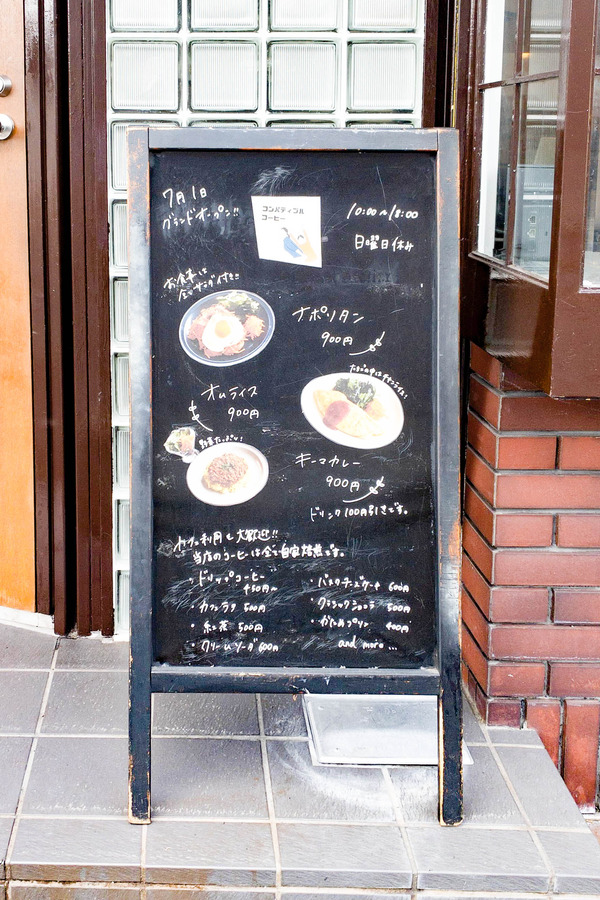 7月1日
グランドオープン!!
コンパティブル
コーヒー
10:00~18:00
日曜日休み
お食事は
全てサラダ付き!!
ナポリタン
900円
たまごの中はチキンライス!
オムライス
900円
野菜たっぷり!
キーマカレー
900円
ドリンク100円引きです。
カフェ利用も大歓迎!!
当店のコーヒーは全て自家焙煎です。
・ドリップコーヒー
450円~
・カフェラテ 500円
・紅茶 500円
・クリームソーダ 600円
・バスクチーズケーキ 600円
・クラシックショコラ 500円
・かためプリン 400円
and more...